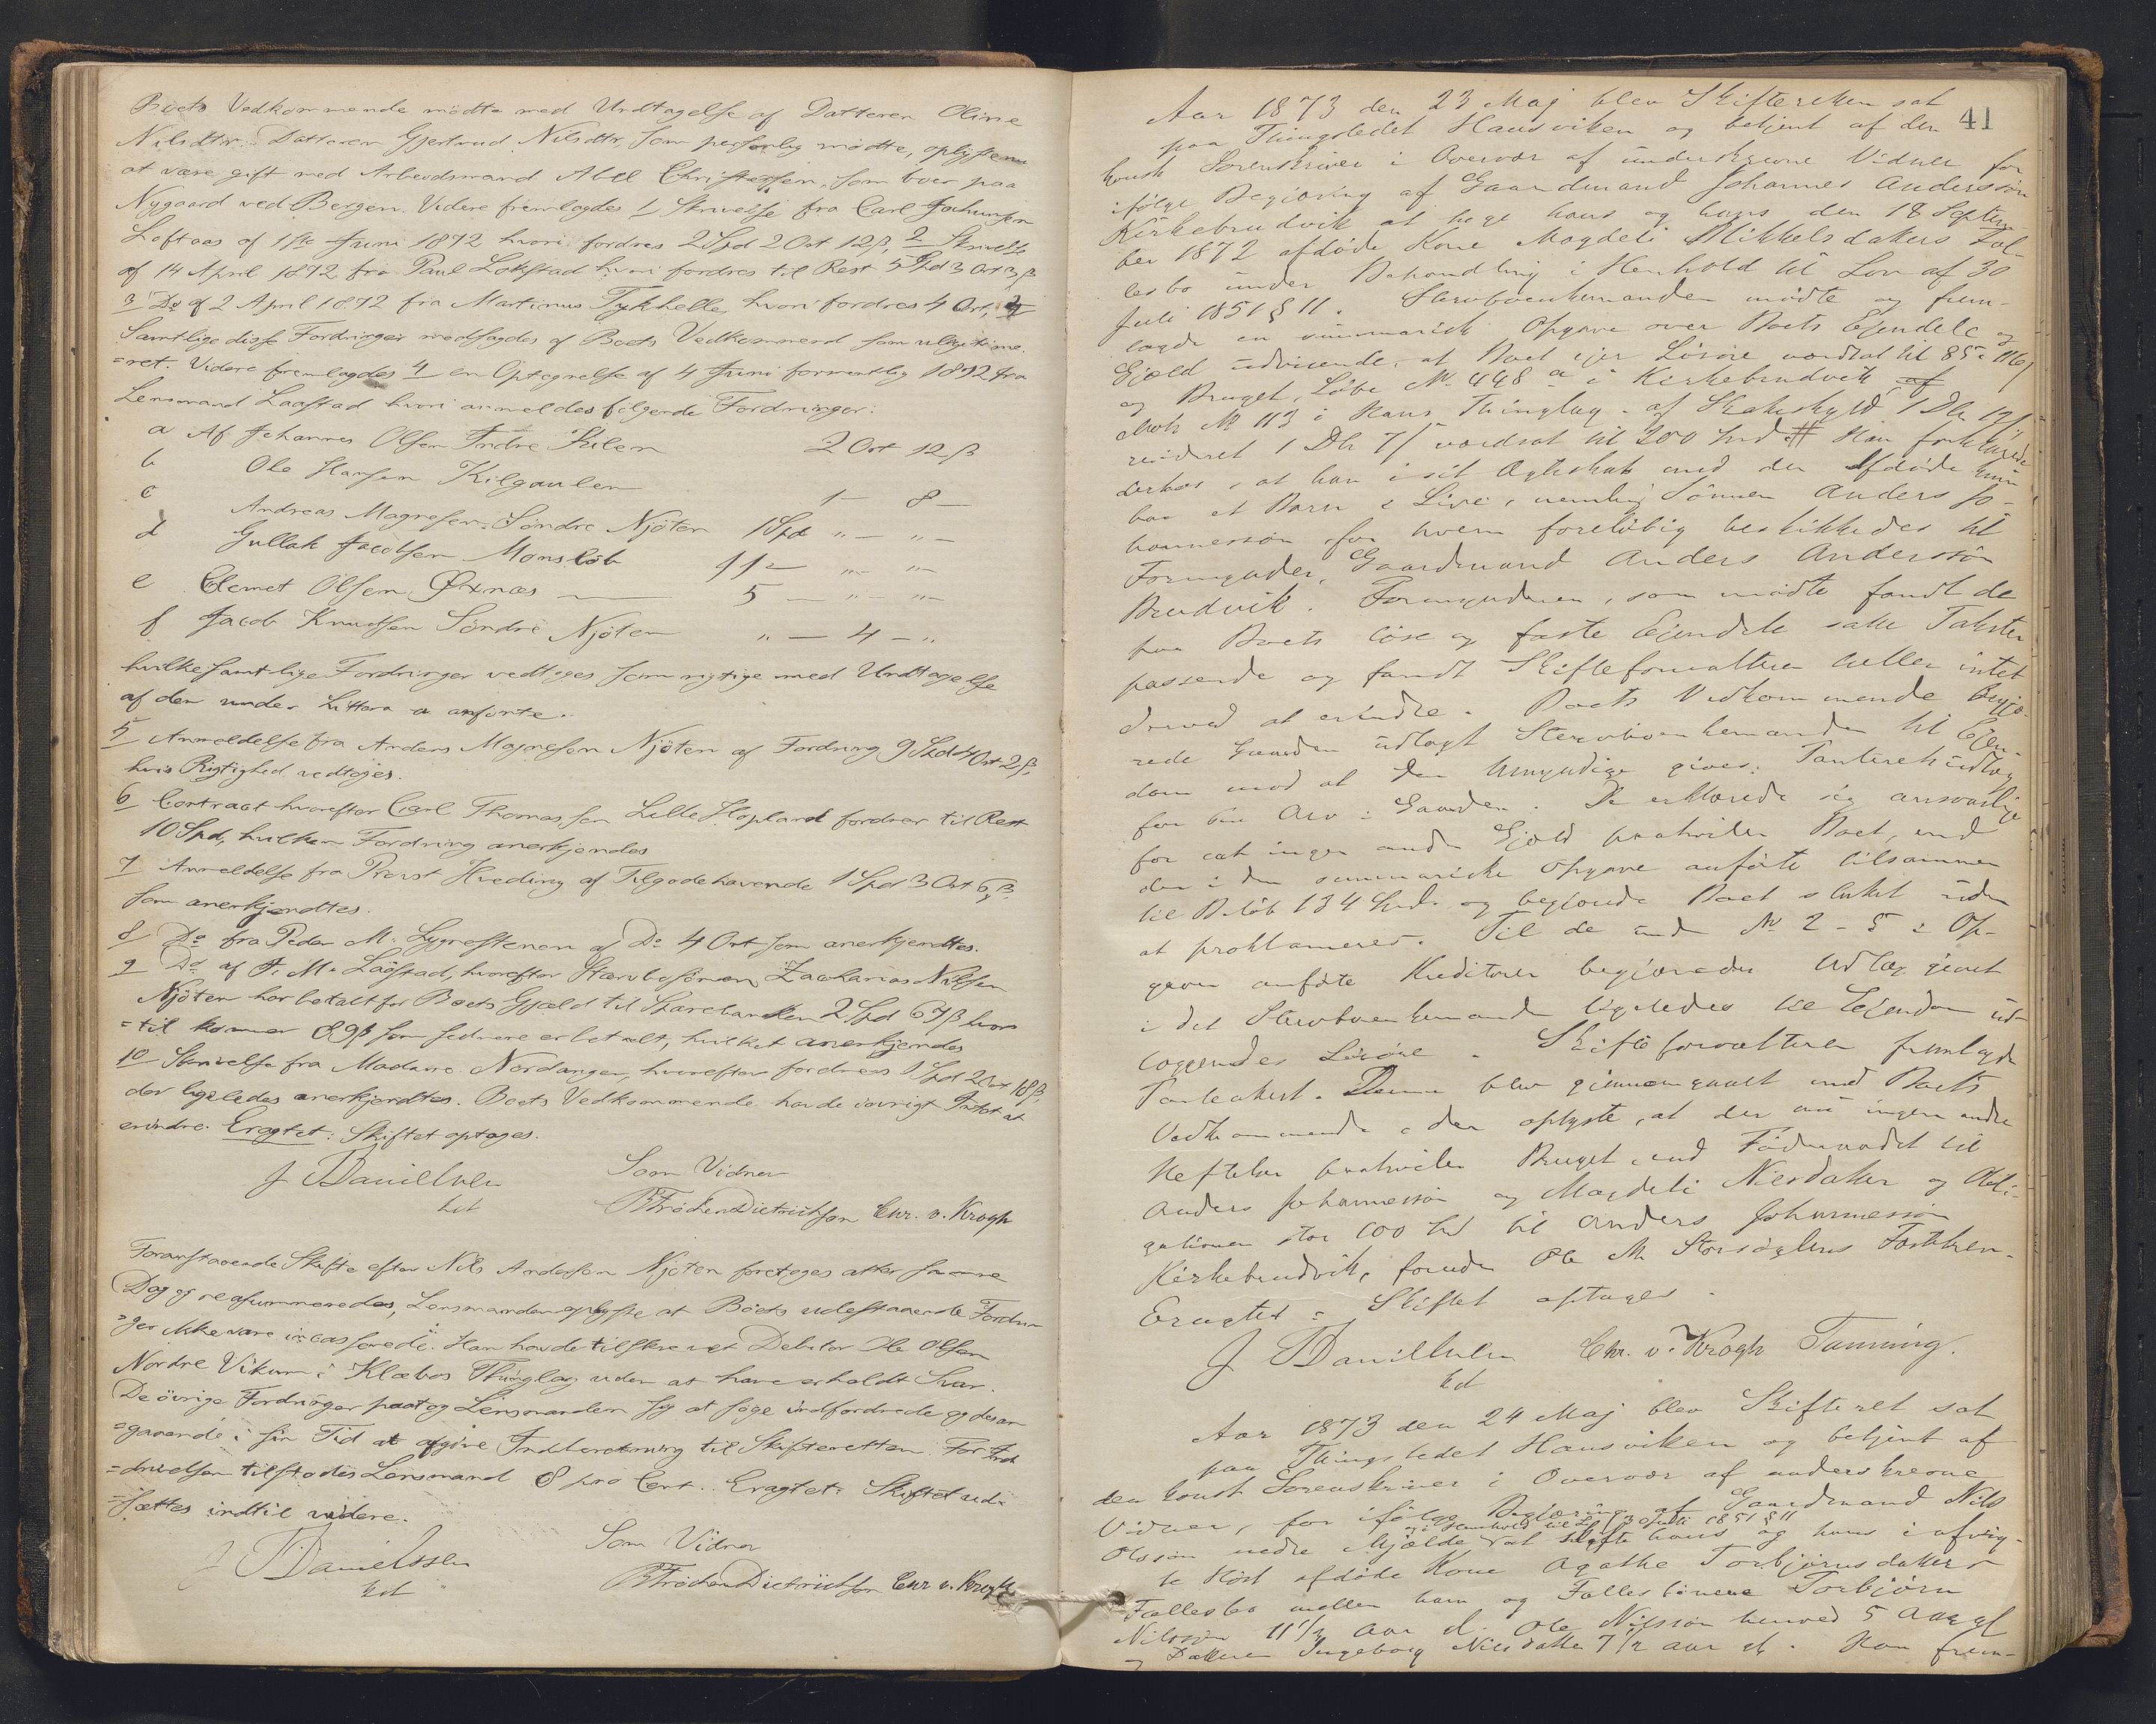 Boets Vedkommende mödte med Undtagelse af Datteren Oline
Nilsdtr. Datteren Gjertrud Nilsdtr, som personlig mödte, oplystes nu
at være gift med Arbeidsmand Abel Christensen, som boer paa
Nygaard ved Bergen. Videre fremlagdes 1 Skrivelse fra Carl
Loftaas af 1ste Juni 1872 hvori fordres 2 Spd 2 Ort 12 β, 2 Skrivelse
af 14 April 1872 fra Paul Lokstad hvori fordres til Rest 5 Spd 3 Ort 3 β
3 Do af 2 April 1872 fra Martinus Tykhelle, hvori fordres 4 Ort,
Samtlige disse Fordringer modsagdes af Boets Vedkommend som ulegitime-
=ret. Videre fremlagdes 4 en Optegnelse af 4 Juni formentlig 1872 fra
Lensmand Laastad hvori anmeldes fölgende Fordringer:
a Af Johannes Olsen Indre Kilen 2 Ort 12 β
b Ole Hansen Kilgaulen 1 - 8 -
c Andreas Magnesen Söndre Njöten 1 Spd " - " -
d Gullak Jacobsen Monslöb 11 - " - " -
e Clemet Olsen Öxnæs - 5 - " - " -
f Jacob Knudsen Söndre Njöten " - 4 - "
hvilke samtlige Fordringer vedtoges som rigtige med Undtagelse
af den under Littera a anförte.
5 Anmeldelse fra Anders Magnesen Njöten af Fordring 9 Spd 4 Ort 2 β,
hvis Rigtighed vedtoges.
6 Contract hvorefter Carl Thomassen Lille Hopland fordrer til Rest
10 Spd, hvilken Fordring anerkjendes
7 Anmeldelse fra Provst Hveding af Tilgodehavende 1 Spd 3 Ort 6 β
som anerkjendtes.
8 Do fra Peder M. Lygrestenen af Do 4 Ort som anerkjendtes.
9 Do af F. M. Laastad, hvorefter Stervbosönnen Zacharias Nilsen
Njöten har betalt for Boets Gjæld til Sparebanken 2 Spd 67 β hvor
=til kommer 89 β som senere er betalt, hvilket anerkjendes
10 Skrivelse fra Madame Nordanger, hvorefter fordres 1 Spd 2 Ort 18 β,
der ligeledes anerkjendtes. Boets Vedkommende havde iövrigt Intet at
erindre. Eragtet: Skiftet optages.
J Daniellsen Som Vidner
kst B Fröchen Dietrichson Chr. v. Krogh
Foranstaaende Skifte efter Nils Andersen Njöten foretoges atter samme
Dag og reassumeredes, Lensmanden oplyste at Boets udestaaende Fordrin
=ger ikke vare incasserede. Han havde tilskrevet Debitor Ole Olsen
Nordre Vikum i Klæbos Thinglag uden at have erholdt Svar.
De övrige Fordringer paatog Lensmanden sig at söge indfordrede og desan
=gaaende i sin Tid at afgive Indberetning til Skifteretten. For Ind
=drivelsen tilstodes Lensmand 8 pro Cent. Eragtet: Skiftet ud-
=sættes indtil videre.
J Daniellssen Som Vidner
kst B Fröchen Dietrichson Chr v. Krogh
41
Aar 1873 den 23 Maj blev Skifteretten sat
paa Thingstedet Hausviken og betjent af den
konst Sorenskriver i Overvær af underskrevne Vidner for
ifölge Begjæring af Gaardmand Johannes Andersson
Kirkebrudvik at tage hans og hans den 18 Septem
ber 1872 afdöde Kone Magdeli Mikkelsdatters Fæl-
lesbo under Behandling i Henhold til Lov af 30
Juli 1851 § 11. Stervboenkemanden mödte og frem-
lagde en summarisk Opgave over Boets Ejendele og
Gjæld udvisende, at Boet ejer Lösöre værdsat til 85
og Bruget, Löbe No 448 a i Kirkebrudvik
Matr No 113 i Haus Thinglag - af Skatteskyld 1 Dlr
revideret 1 Dlr 7 β værdsat til 200 Spd. # Han forklarede
derhos, at han i sit Ægteskab med den Afdöde kun
har et Barn i Live, nemlig Sönnen Anders Jo-
hannesson for hvem forelöbig beskikkedes til
Formynder, Gaardmand Anders Andersson
Brudvik. Formynderen, som mödte fandt de
paa Boets löse og faste Ejendele satte Takster
passende og fandt Skifteforvalteren heller intet
derved at erindre. Boets Vedkommende begjæ-
rede Gaarden udlagt Stervboenkemanden til Ejen-
dom mod at den Umyndige gives Panteretsudlæg
for sin Arv i Gaarden. De erklærede sig ansvarlige
for at ingen anden Gjæld paahviler Boet, end
den i den summariske Opgave anförte tilsammen
til Belöb 134 Spd. og begjærede Boet sluttet uden
at proklameres. Til de under No 2 - 5 i Op-
gaven anförte Kreditorer begjæredes Udlæg givet
i det Stervboenkemanden ligeledes til Ejendom ud-
læggendes Lösöre. Skifteforvalteren fremlagde
Panteattest. Denne blev gjennemgaaet med Boets
Vedkommende, der oplyste, at der nu ingen andre
Heftelser paahviler Bruget, end Föderaadet til
Anders Johannesson og Magdeli Nilsdatter og Obli-
gationen stor 100 Spd til Anders Johannesson
Kirkebrudvik, foruden Ole M. Fortkren-
Eragtet: Skiftet optages.
J Daniellsen Chr. v. Krogh Tanning.
kst
Aar 1873 den 24 Maj blev Skifteret sat
paa Thingstedet Hausviken og betjent af
den konst Sorenskriver i Overvær af underskrevne
Vidner, for ifölge Begjæring af Gaardmand Nils
og i Henhold til Lov 30 Juli 1851 § 11
Olsson nedre Mjelde at skifte hans og hans i afvig-
te Höst afdöde Kone Agathe Torbjörnsdatters
Fællesbo mellem ham og Fællesbörnene Torbjörn
Nilsson 11 1/2 Aar gl. Ole Nilsson henved 5 Aar gl
og Datteren Ingeborg Nilsdatter 7 1/2 Aar gl. Han frem-